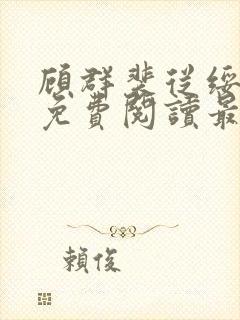 顧群裴從綏
免費閱讀最
賴俊